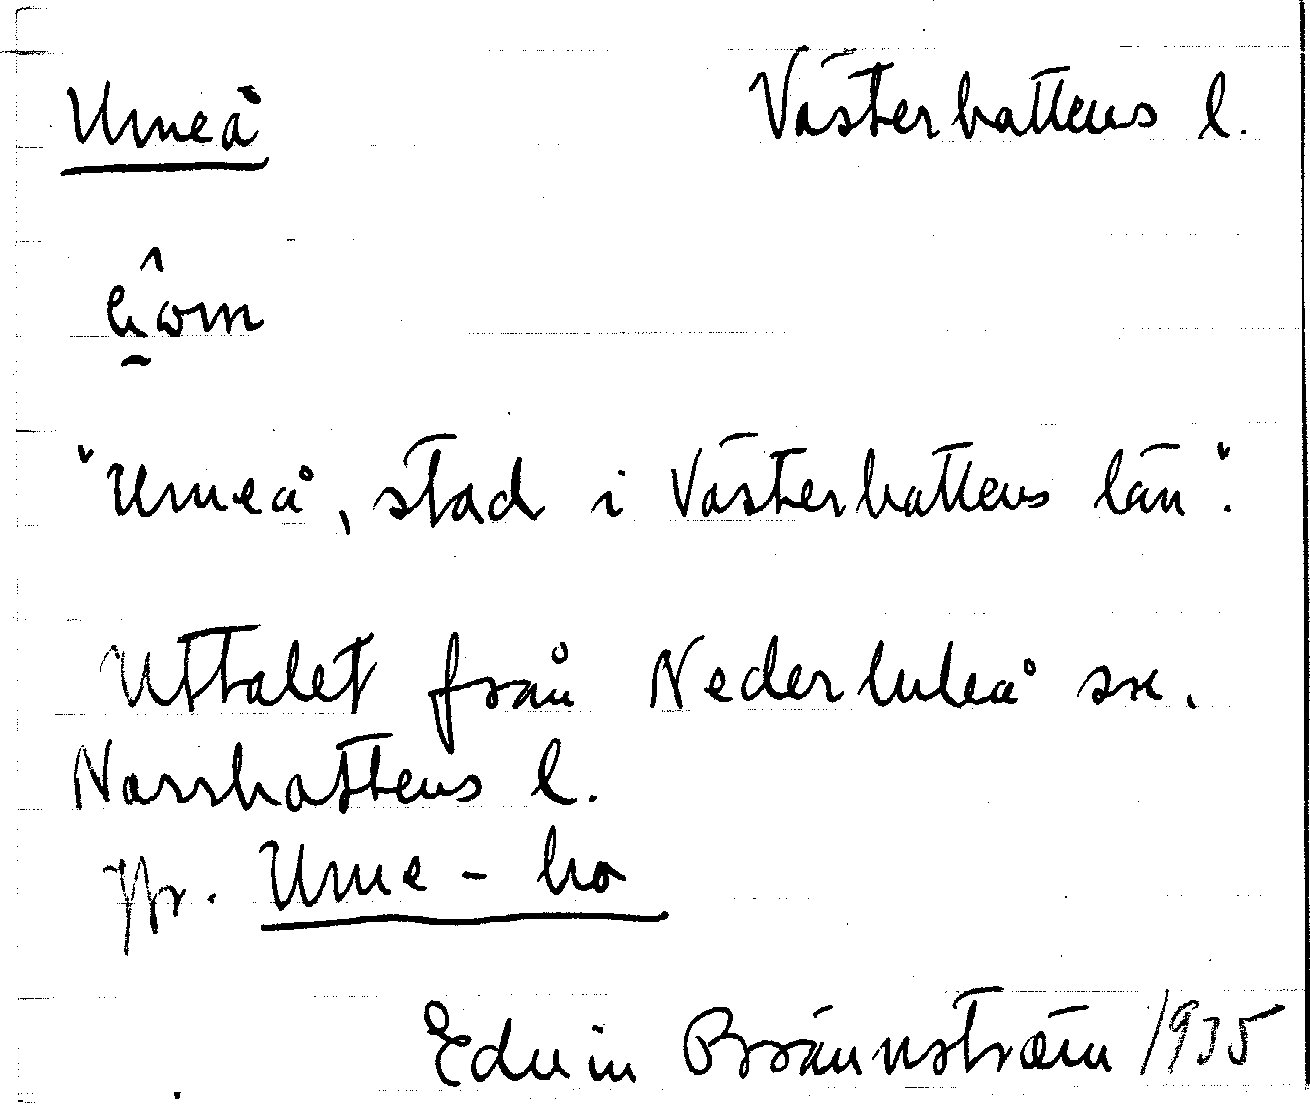 Umeå Västerbottens l.
"Umeå, stad i Västerbottens län".
Uttalet från Nederluleå sn.
Norrbottens l.
Jfr. Ume - bo
Edvin Brännström 1935